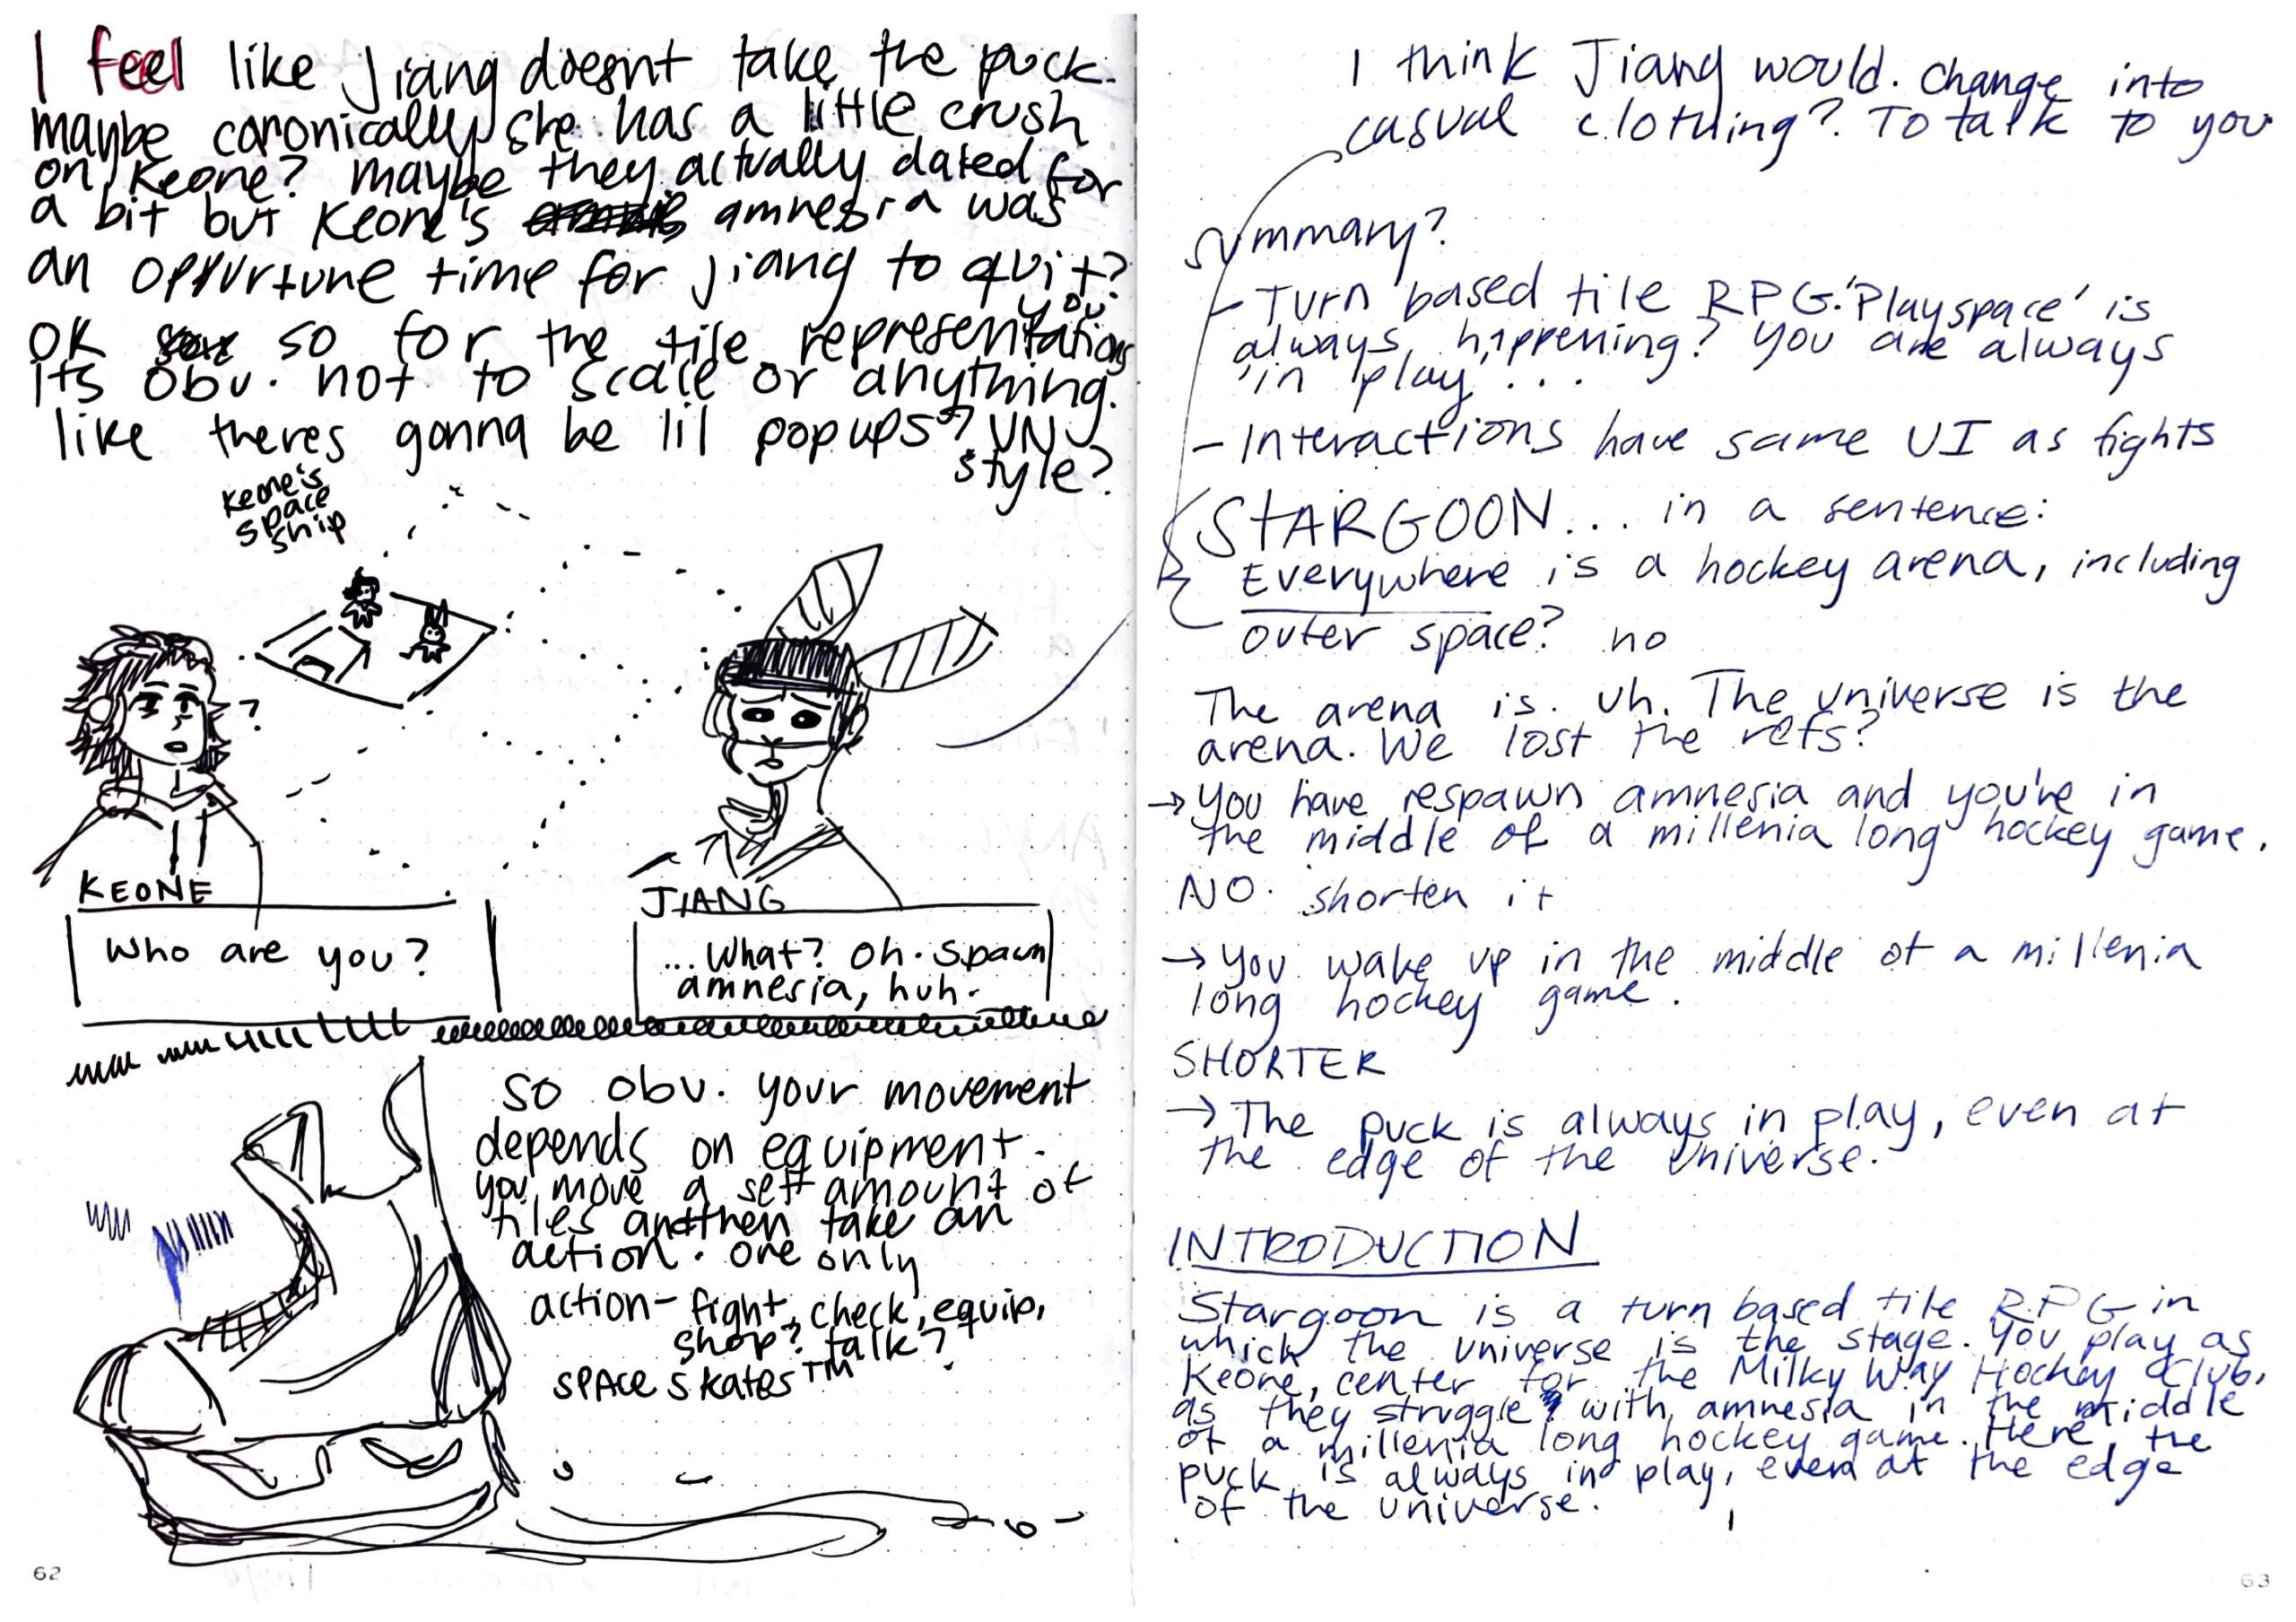 I feel like Jiang doesnt take the puck.
maybe canonically she has a little crush
on Keone? maybe they actually dated for
a bit but Keone's amnesia was
an oppurtune time for Jiang to quit?
you
OK so for the tile representations
its obv. not to scale or anything.
like theres gonna be lil popups? VN
style?
Keone's
space
ship
?
KEONE
Who are you?
JIANG
... What? Oh. spawn
amnesia, huh.
so obv. your movement
depends on equipment.
you move a set amount of
tiles and then take an
action. one only
action- fight, check, equip,
shop? talk?
SPACE SKATES™
62
I think Jiang would. change into
casual clothing? To talk to you
summary?
- Turn based tile RPG. 'Playspace' is
always happening? You are always
'in play'...
- Interactions have same UI as fights
STARGOON... in a sentence:
Everywhere is a hockey arena, including
outer space? no
The arena is. Uh. The universe is the
arena. We lost the refs?
→ You have respawn amnesia and you're in
the middle of a millenia long hockey game.
NO. shorten it
→ You wake up in the middle of a millenia
long hockey game.
SHORTER
→ The puck is always in play, even at
the edge of the universe.
INTRODUCTION
Stargoon is a turn based tile RPG in
which the universe is the stage. You play as
Keone, center for the Milky Way Hockey Club,
as they struggle with amnesia in the middle
of a millenia long hockey game. Here, the
puck is always in play, even at the edge
of the universe.
63